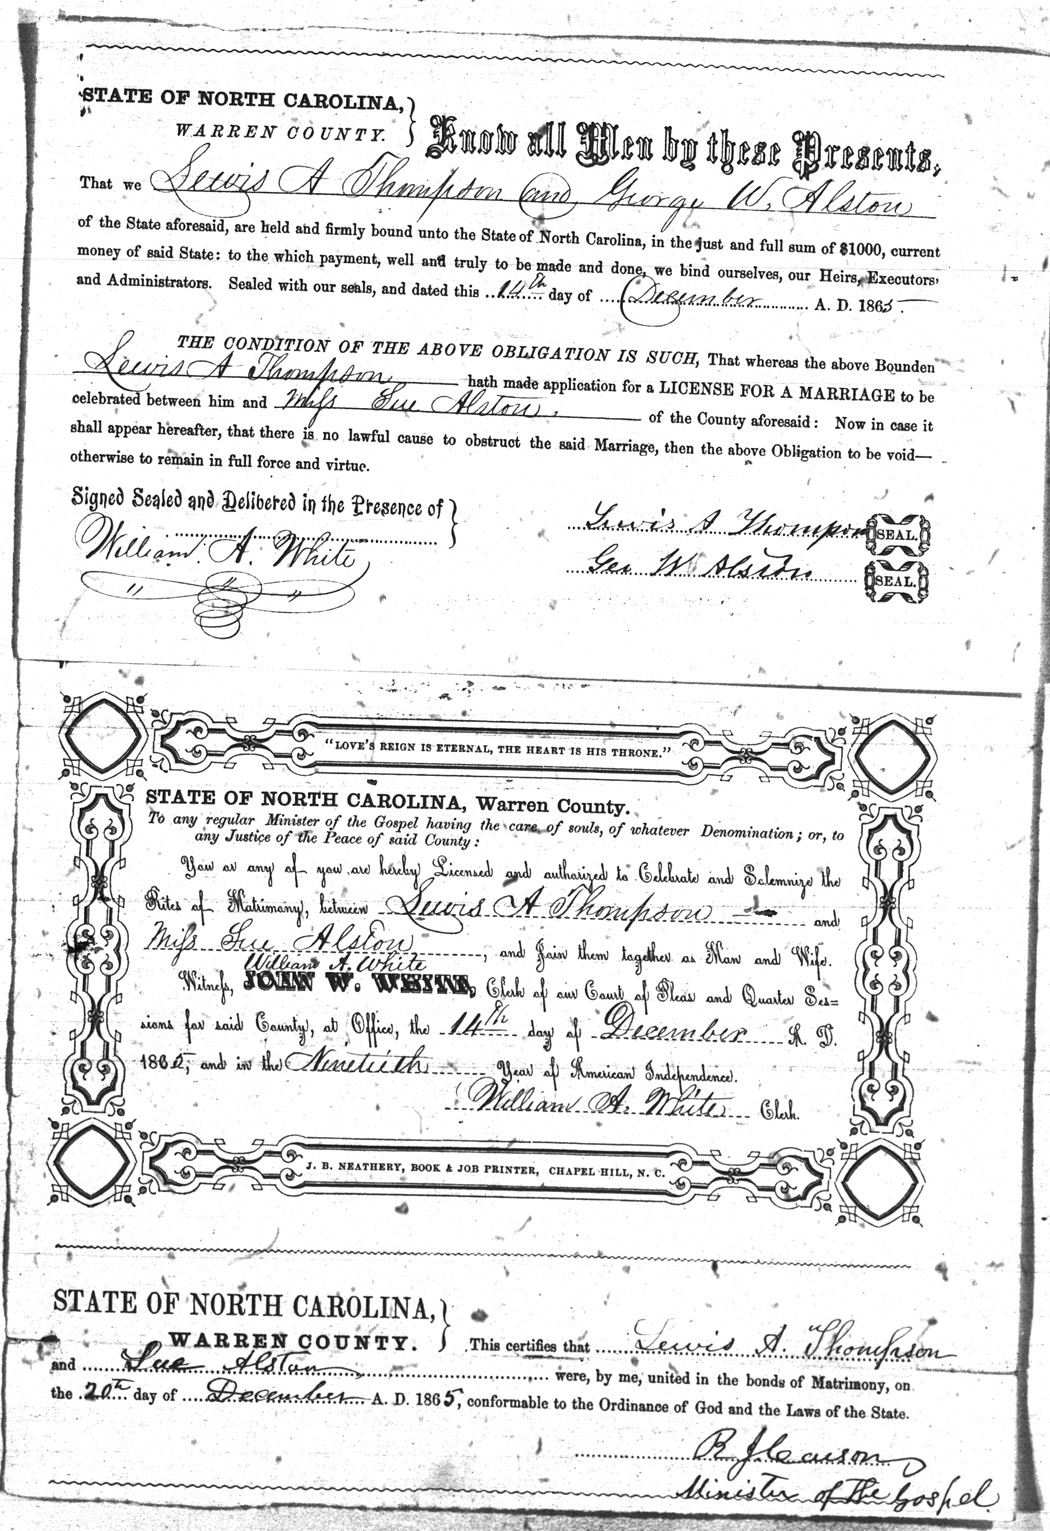 STATE OF NORTH CAROLINA,
WARREN COUNTY.
Know all Men by these Presents,
That we Lewis A Thompson and George W. Alston
of the State aforesaid, are held and firmly bound unto the State of North Carolina, in the just and full sum of $1000, current
money of said State: to the which payment, well and truly to be made and done, we bind ourselves, our Heirs, Executors
and Administrators. Sealed with our seals, and dated this 14th day of December A. D. 1865.
THE CONDITION OF THE ABOVE OBLIGATION IS SUCH, That whereas the above Bounden
Lewis A Thompson hath made application for a LICENSE FOR A MARRIAGE to be
celebrated between him and Miss Sue Alston, of the County aforesaid: Now in case it
shall appear hereafter, that there is no lawful cause to obstruct the said Marriage, then the above Obligation to be void—
otherwise to remain in full force and virtue.
Signed Sealed and Delibered in the Presence of
William A. White
Lewis A Thompson SEAL.
Geo W Alston SEAL.
"LOVE'S REIGN IS ETERNAL, THE HEART IS HIS THRONE."
STATE OF NORTH CAROLINA, Warren County.
To any regular Minister of the Gospel having the care of souls, of whatever Denomination; or, to
any Justice of the Peace of said County:
You or any of you are hereby Licensed and authorized to Celebrate and Solemnize the
Rites of Matrimony, between Lewis A Thompson and
Miss Sue Alston, and Join them together as Man and Wife.
William A. White
Witness, JOHN W. WHITE, Clerk of our Court of Pleas and Quarter Ses=
sions for said County, at Office, the 14th day of December A. D.
1865, and in the Ninetieth Year of American Independence.
William A. White Clerk.
J. B. NEATHERY, BOOK & JOB PRINTER, CHAPEL HILL, N. C.
STATE OF NORTH CAROLINA,
WARREN COUNTY.
This certifies that Lewis A. Thompson
and Sue Alston were, by me, united in the bonds of Matrimony, on
the 20th day of December A. D. 1865, conformable to the Ordinance of God and the Laws of the State.
R J Carson
Minister of the Gospel.